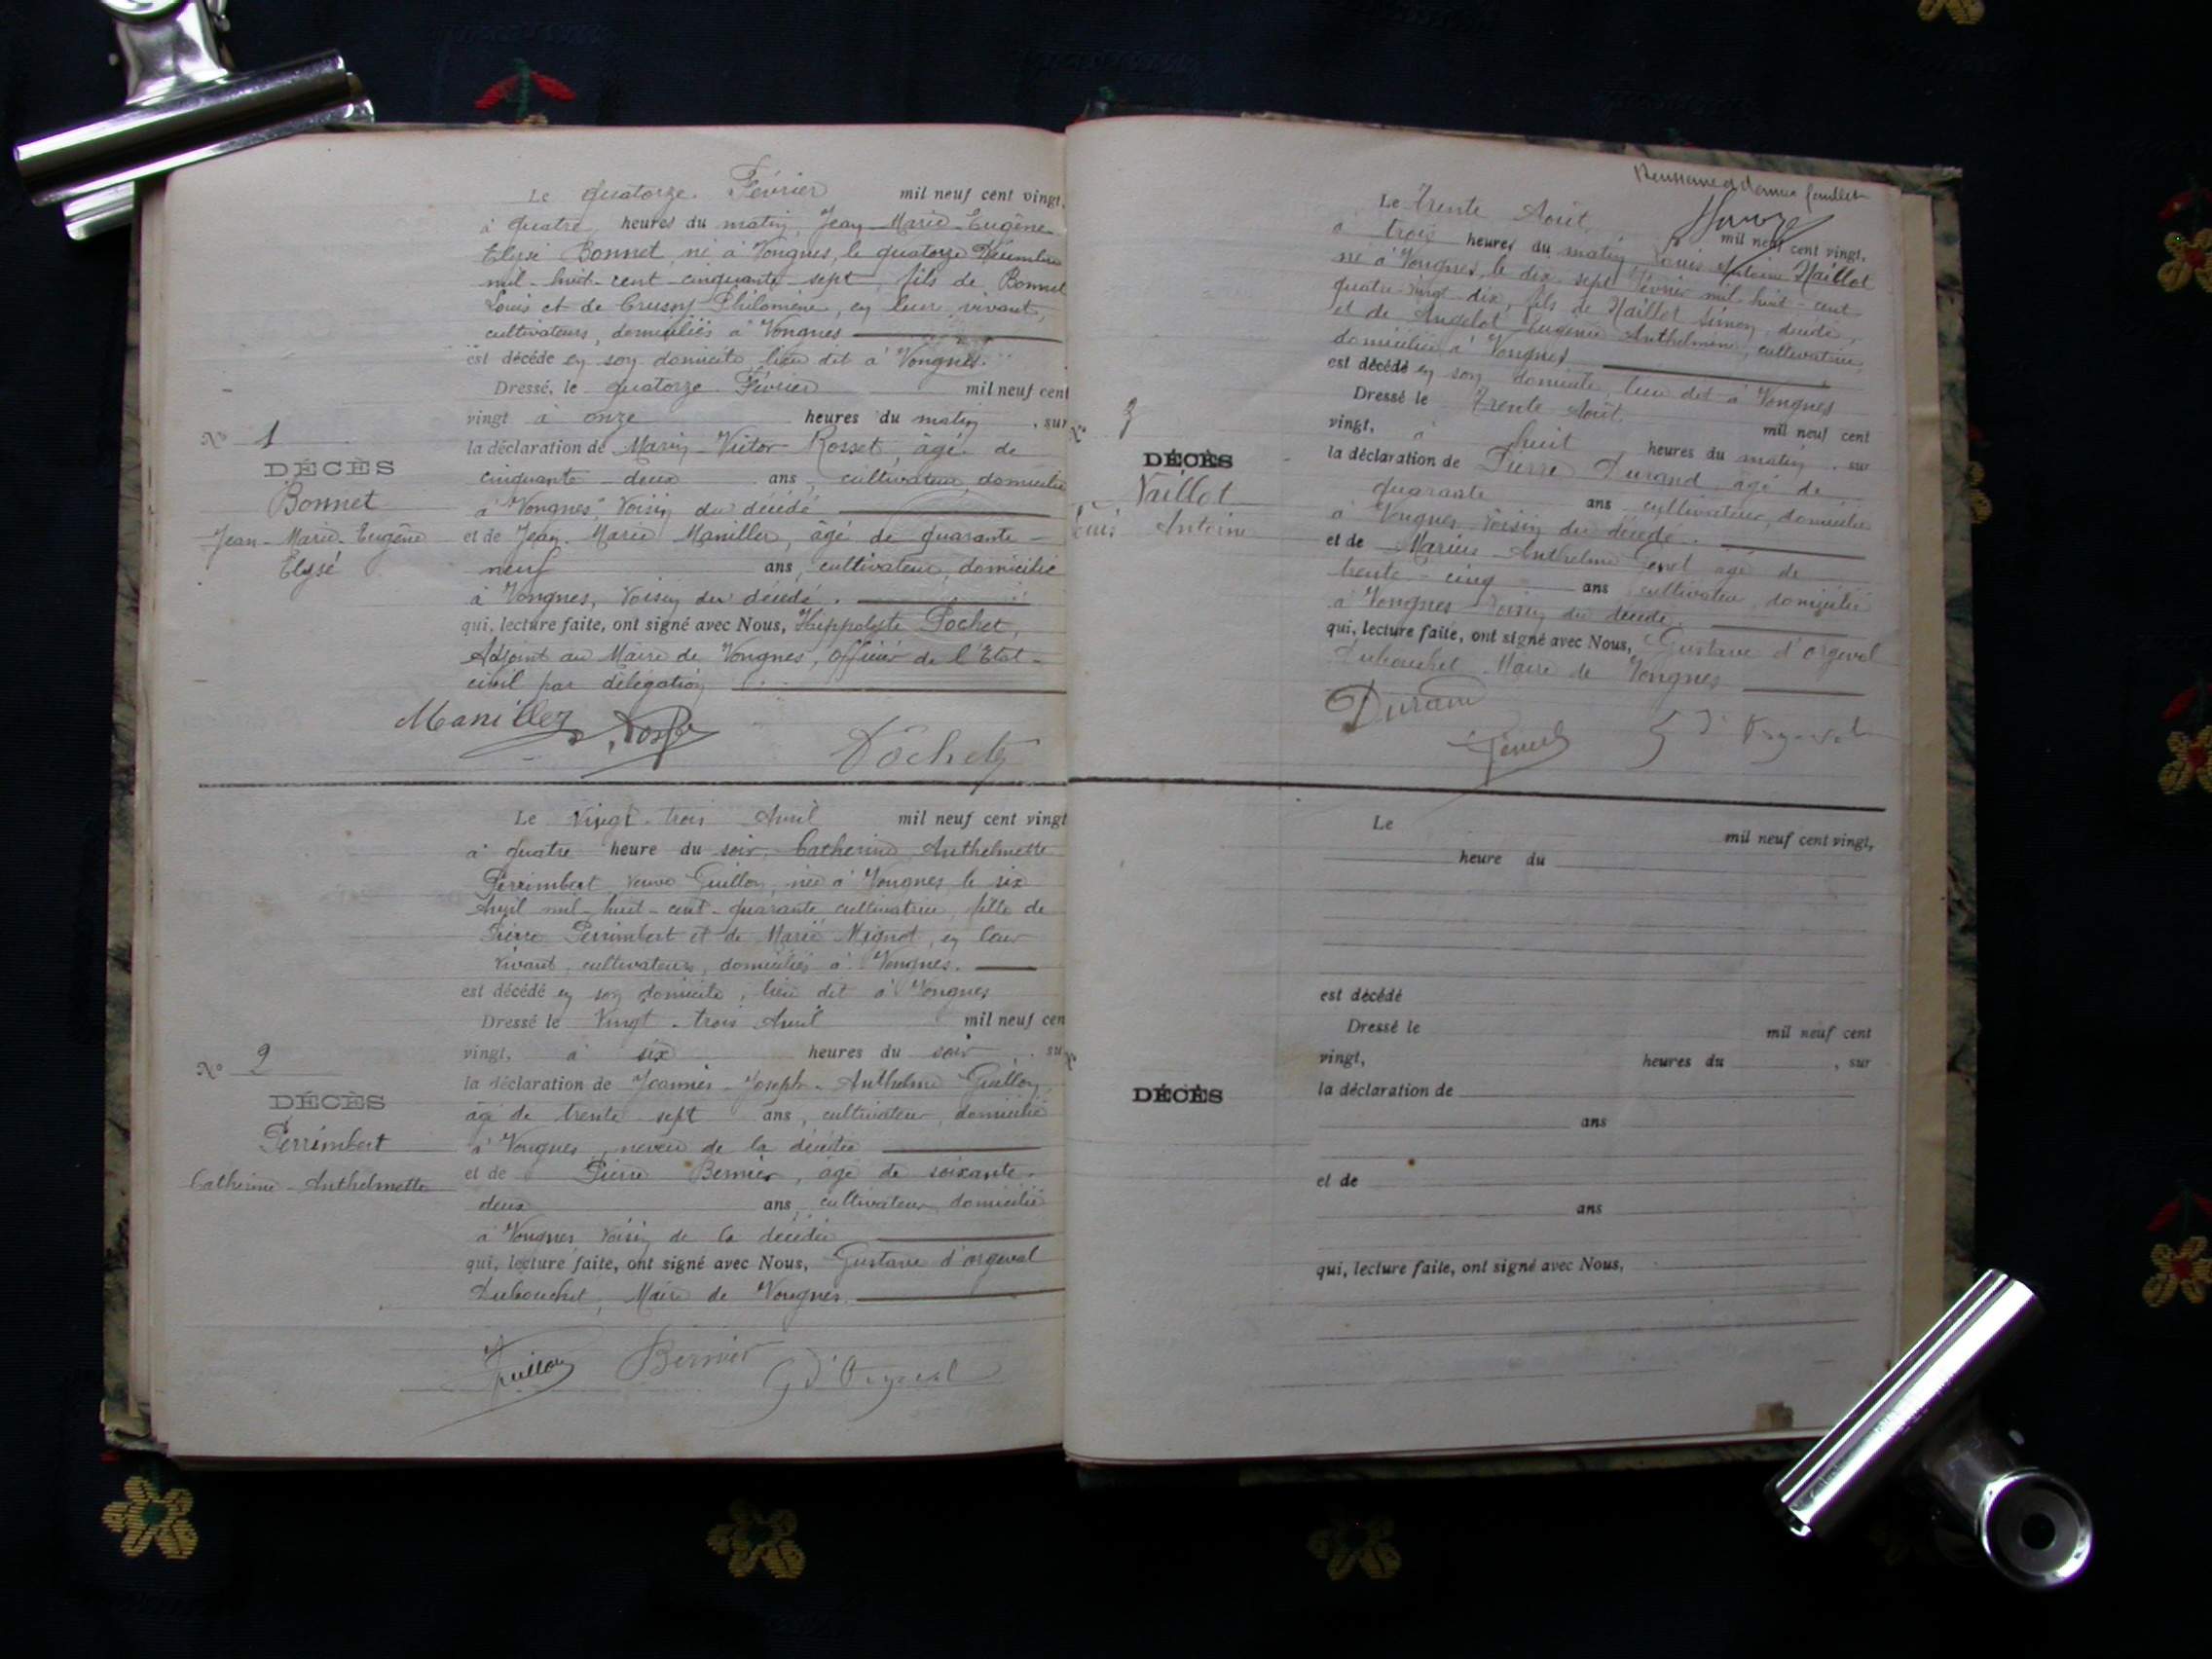 Le quatorze Février mil neuf cent vingt,
à quatre heures du matin, Jean-Marie-Eugène
Elysé Bonnet, né à Vongnes, le quatorze Décembre
mil-huit-cent-cinquante-sept, fils de Bonnet
Louis et de Philomène, en leur vivant,
cultivateurs, domiciliés à Vongnes
est décédé en son domicile, lieu dit à Vongnes.
Dressé, le quatorze Février mil neuf cent
vingt à onze heures du matin, sur
la déclaration de Marin-Victor Rosset, âgé de
cinquante-deux ans, cultivateur, domicilié
à Vongnes, voisin du décédé
et de Jean-Marie Maniller, âgé de quarante-
neuf ans, cultivateur, domicilié
à Vongnes, voisin du décédé.
qui, lecture faite, ont signé avec Nous, Hippolyte Pochet,
Adjoint au Maire de Vongnes, officier de l'Etat-
civil par délégation
N° 1
DÉCÈS
Bonnet
Jean-Marie-Eugène
Elysé
Maniller Pochet
Le vingt-trois Avril mil neuf cent vingt
à quatre heure du soir, Catherine Anthelmette
Perrimbert, veuve Guillon, née à Vongnes, le six
Avril mil-huit-cent-quarante, cultivatrice, fille de
Pierre Perrimbert et de Marie Mignot, en leur
vivant, cultivateurs, domiciliés à Vongnes.
est décédé en son domicile, lieu dit à Vongnes
Dressé le vingt-trois Avril mil neuf cen
vingt, à six heures du soir, su
la déclaration de Joannès-Joseph-Anthelme Guillon,
âgé de trente sept ans, cultivateur, domicilié
à Vongnes, neveu de la décédée
et de Pierre Bernier, âgé de soixante-
deux ans, cultivateur, domicilié
à Vongnes, voisin de la décédée
qui, lecture faite, ont signé avec Nous, Gustave d'orgeval
Dubouchet, Maire de Vongnes.
N° 2
DÉCÈS
Perrimbert
Catherine-Anthelmette
Guillon Bernier G d'Orgeval
Le Trente Août mil neuf cent vingt,
à trois heures du matin, Louis Antoine Vaillot
né à Vongnes, le dix sept Février mil-huit-cent
quatre-vingt-dix, fils de Vaillot Simon, décédé,
et de Angelot Eugénie Anthelmine, cultivatrice,
domiciliée à Vongnes
est décédé en son domicile, lieu dit à Vongnes
Dressé le Trente Août mil neuf cent
vingt, à huit heures du matin, sur
la déclaration de Pierre Durand, âgé de
quarante ans cultivateur, domicilié
à Vongnes voisin du décédé.
et de Marius-Anthelme Genet âgé de
trente-cinq ans cultivateur, domicilié
à Vongnes voisin du décédé.
qui, lecture faite, ont signé avec Nous, Gustave d'orgeval
Dubouchet, Maire de Vongnes
3
DÉCÈS
Vaillot
Antoine
Durand
Genet G d'Orgeval
Le mil neuf cent vingt,
heure du
est décédé
Dressé le mil neuf cent
vingt, heures du , sur
la déclaration de
ans
et de
ans
qui, lecture faite, ont signé avec Nous,
DÉCÈS